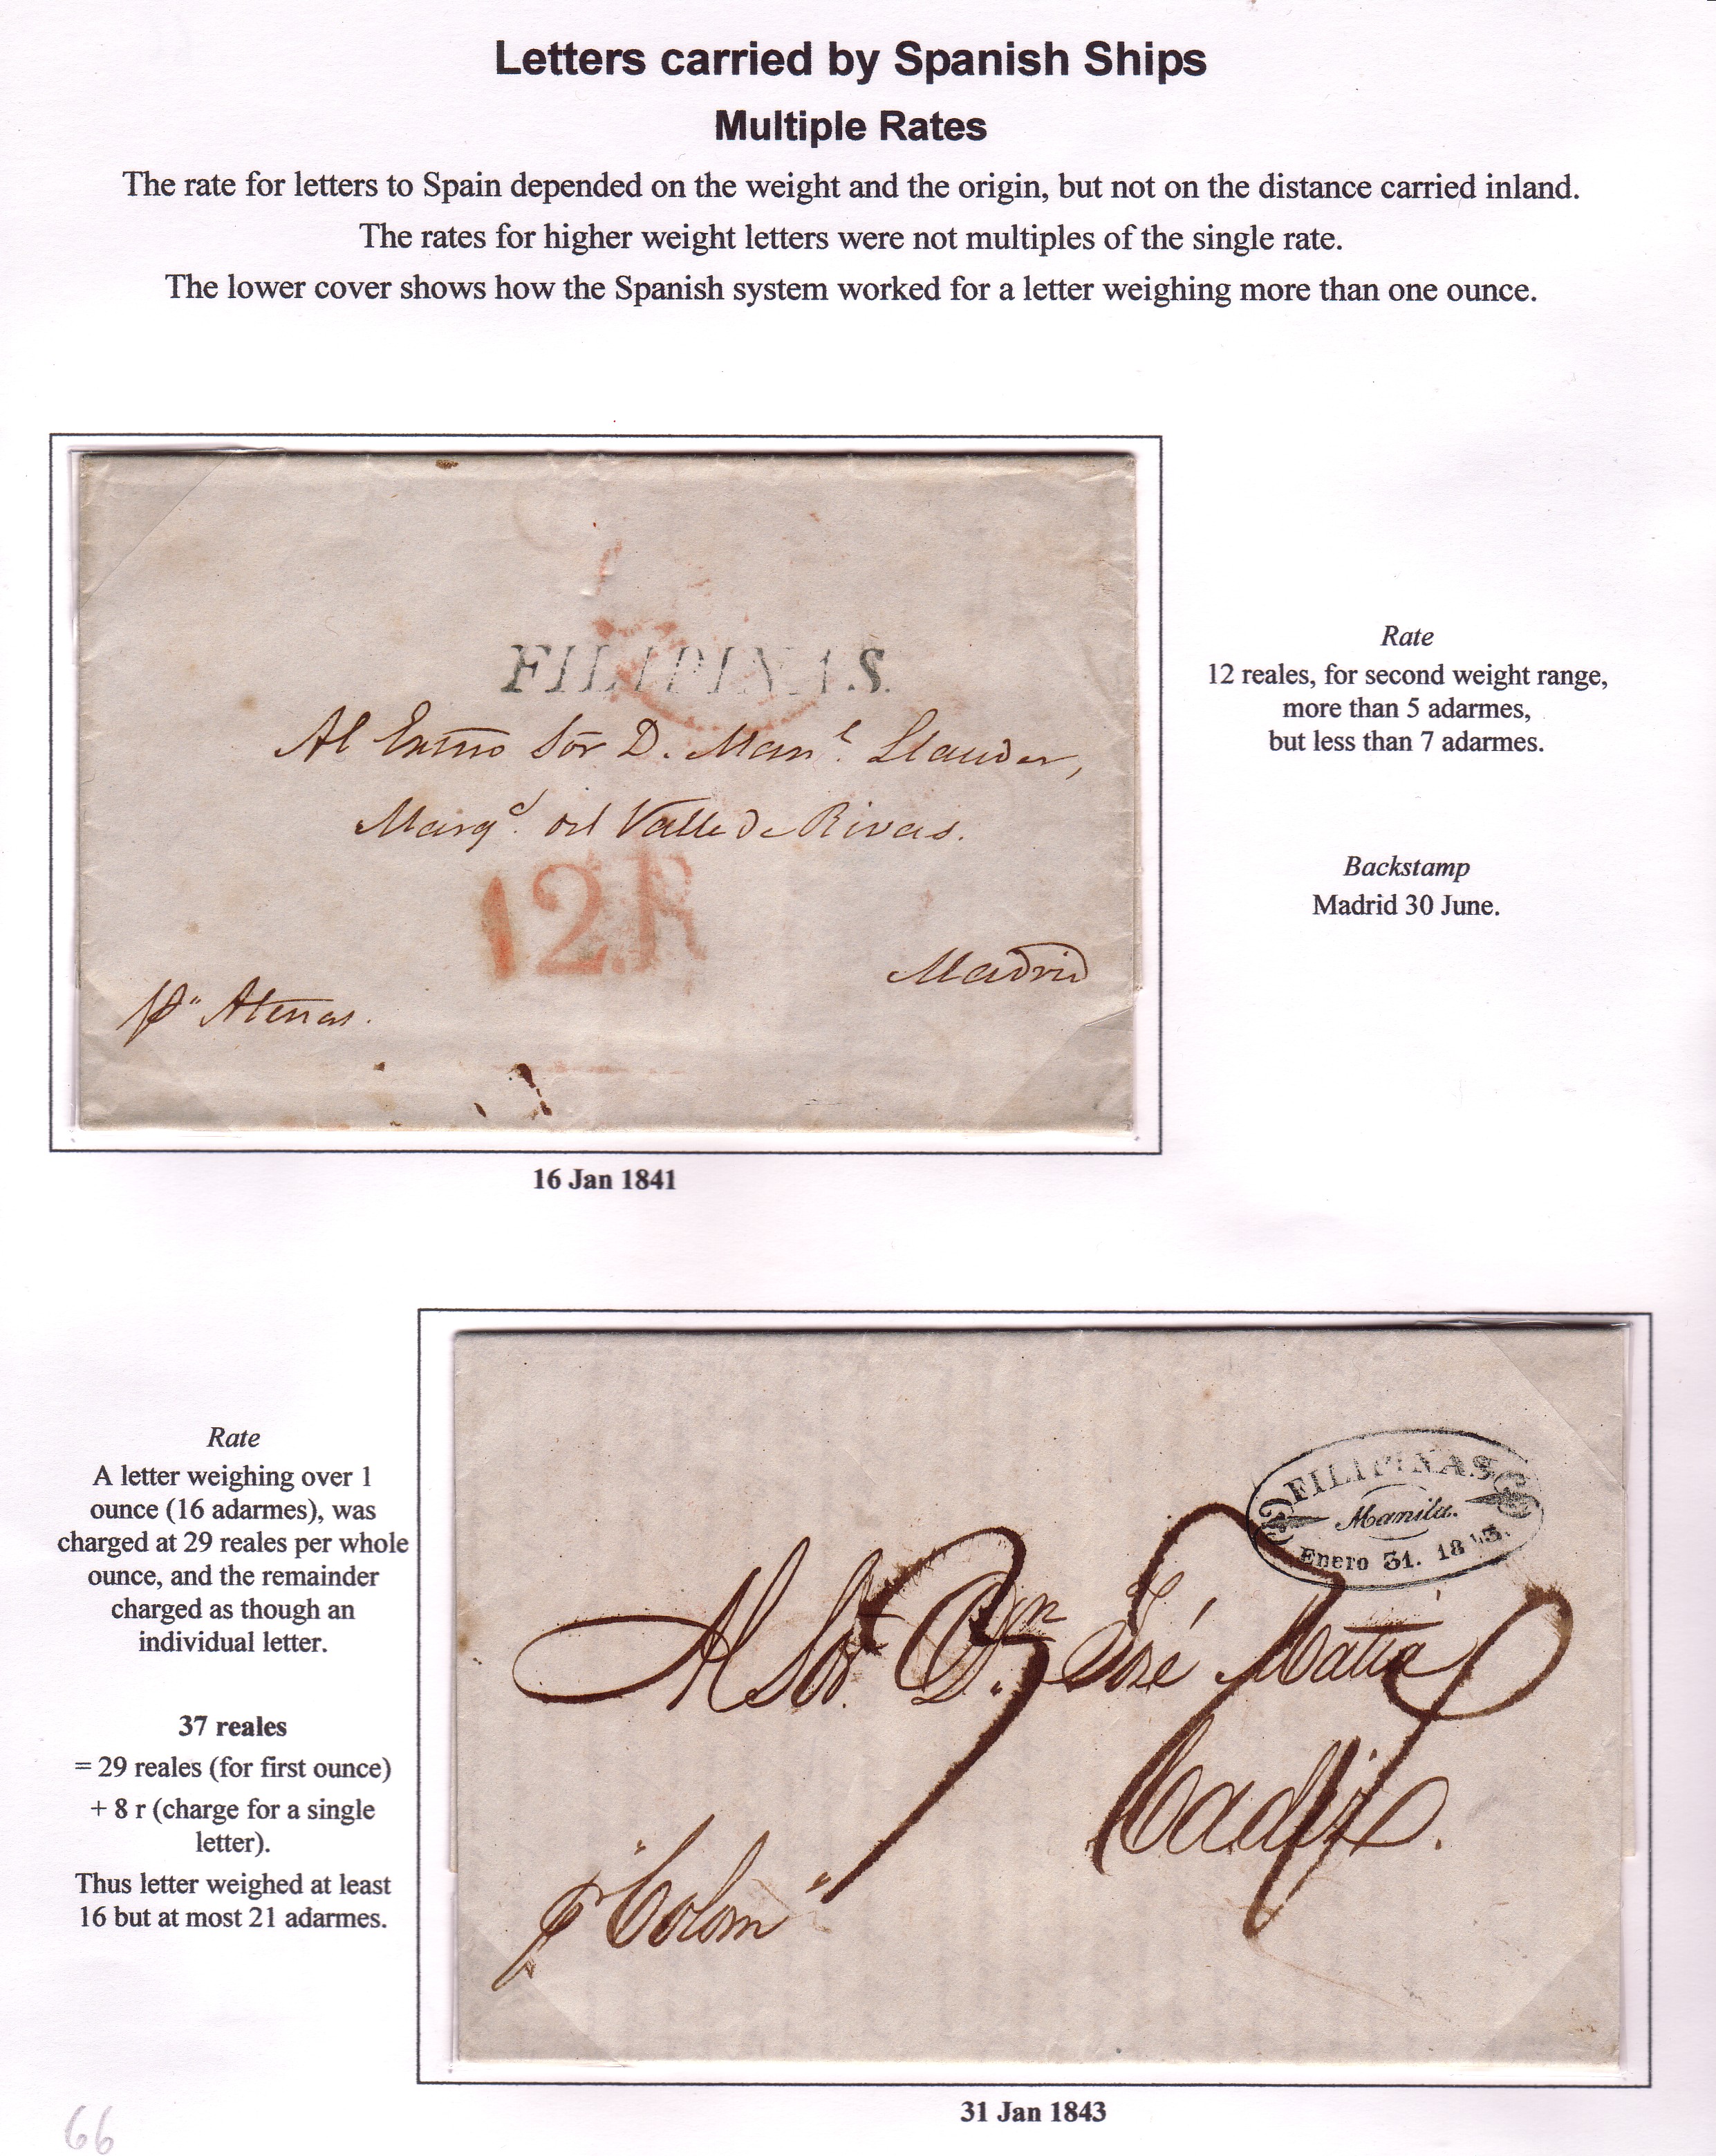 Letters carried by Spanish Ships
Multiple Rates
The rate for letters to Spain depended on the weight and the origin, but not on the distance carried inland.
The rates for higher weight letters were not multiples of the single rate.
The lower cover shows how the Spanish system worked for a letter weighing more than one ounce.
FILIPINAS.
Al Exmo Sor D. Man.l Llauder,
Marq.s del Valle de Rivas.
12.R
Madrid
p" Atenas.
16 Jan 1841
Rate
12 reales, for second weight range,
more than 5 adarmes,
but less than 7 adarmes.
Backstamp
Madrid 30 June.
Rate
A letter weighing over 1
ounce (16 adarmes), was
charged at 29 reales per whole
ounce, and the remainder
charged as though an
individual letter.
37 reales
= 29 reales (for first ounce)
+ 8 r (charge for a single
letter).
Thus letter weighed at least
16 but at most 21 adarmes.
FILIPINAS
Manila.
Enero 31. 1843.
37
Al Sor. D.n José Matia
Cadiz.
p "Colon"
31 Jan 1843
66